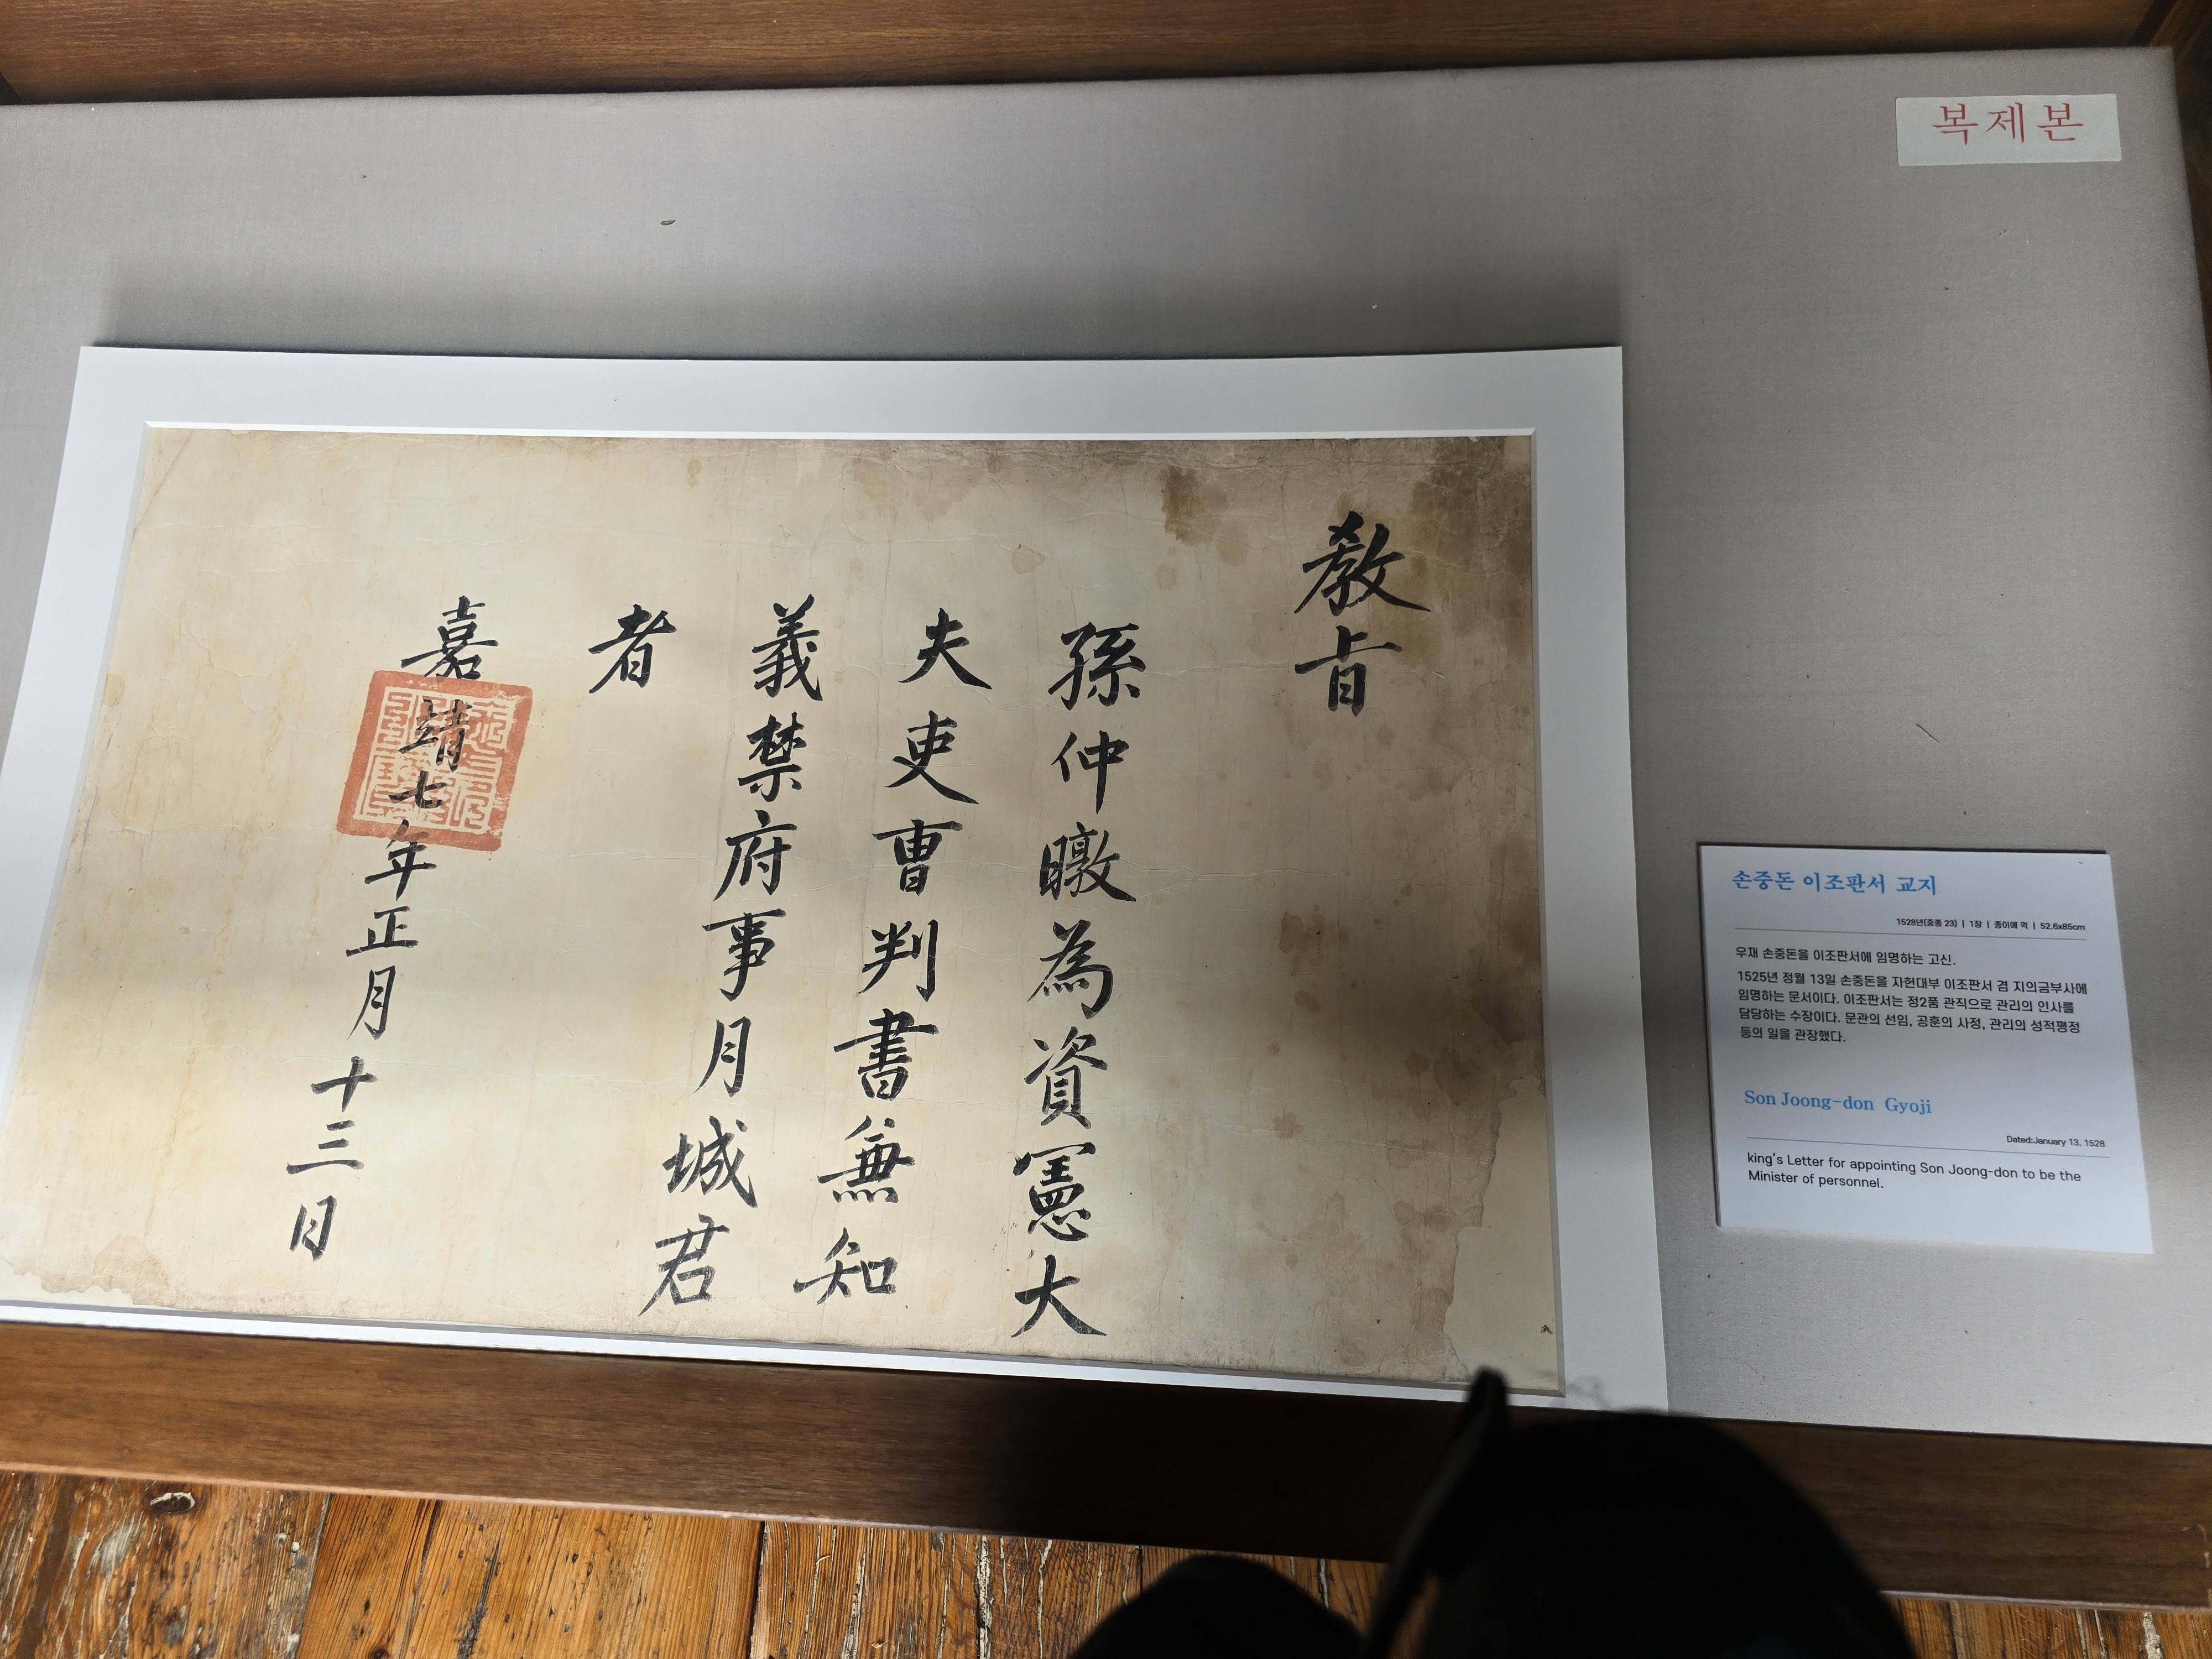 복제본
敎旨
孫仲暾為資憲大
夫吏曹判書兼知
義禁府事月城君
者
嘉靖七年正月十三日
손중돈 이조판서 교지
1528년(중종 23) | 1장 | 종이에 먹 | 52.6x85cm
우재 손중돈을 이조판서에 임명하는 고신.
1525년 정월 13일 손중돈을 자헌대부 이조판서 겸 지의금부사에
임명하는 문서이다. 이조판서는 정2품 관직으로 관리의 인사를
담당하는 수장이다. 문관의 선임, 공훈의 사정, 관리의 성적평정
등의 일을 관장했다.
Son Joong-don Gyoji
Dated:January 13. 1528
king's Letter for appointing Son Joong-don to be the
Minister of personnel.